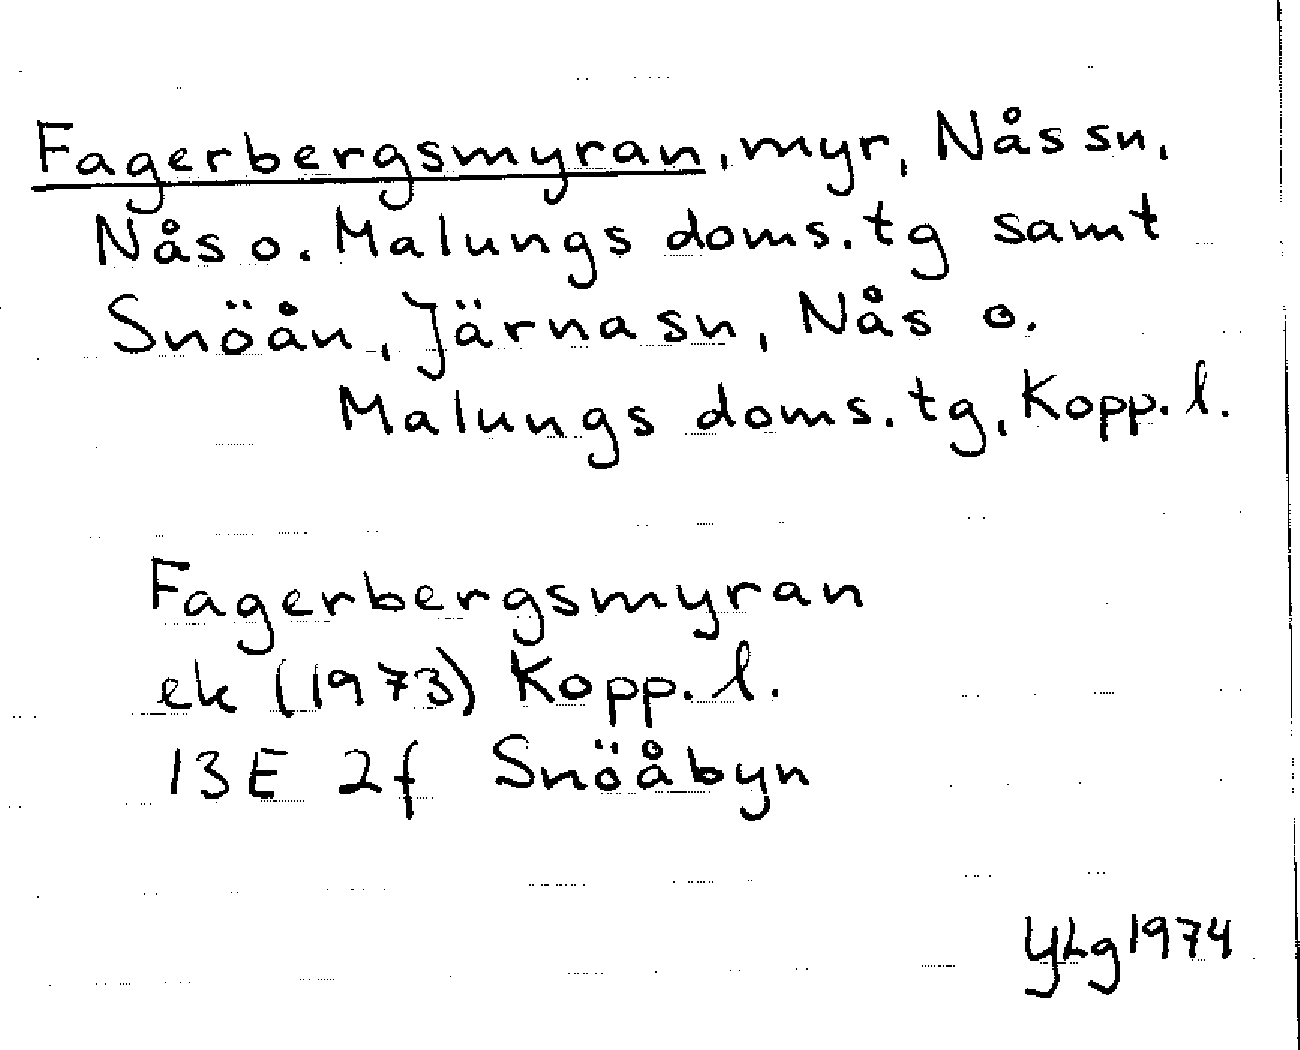 Fagerbergsmyran, myr, Nås sn,
Nås o. Malungs doms.tg samt
Snöån, Järna sn, Nås o.
Malungs doms.tg, Kopp.l.
Fagerbergsmyran
ek (1973) Kopp.l.
13E 2f Snöåbyn
YLg 1974